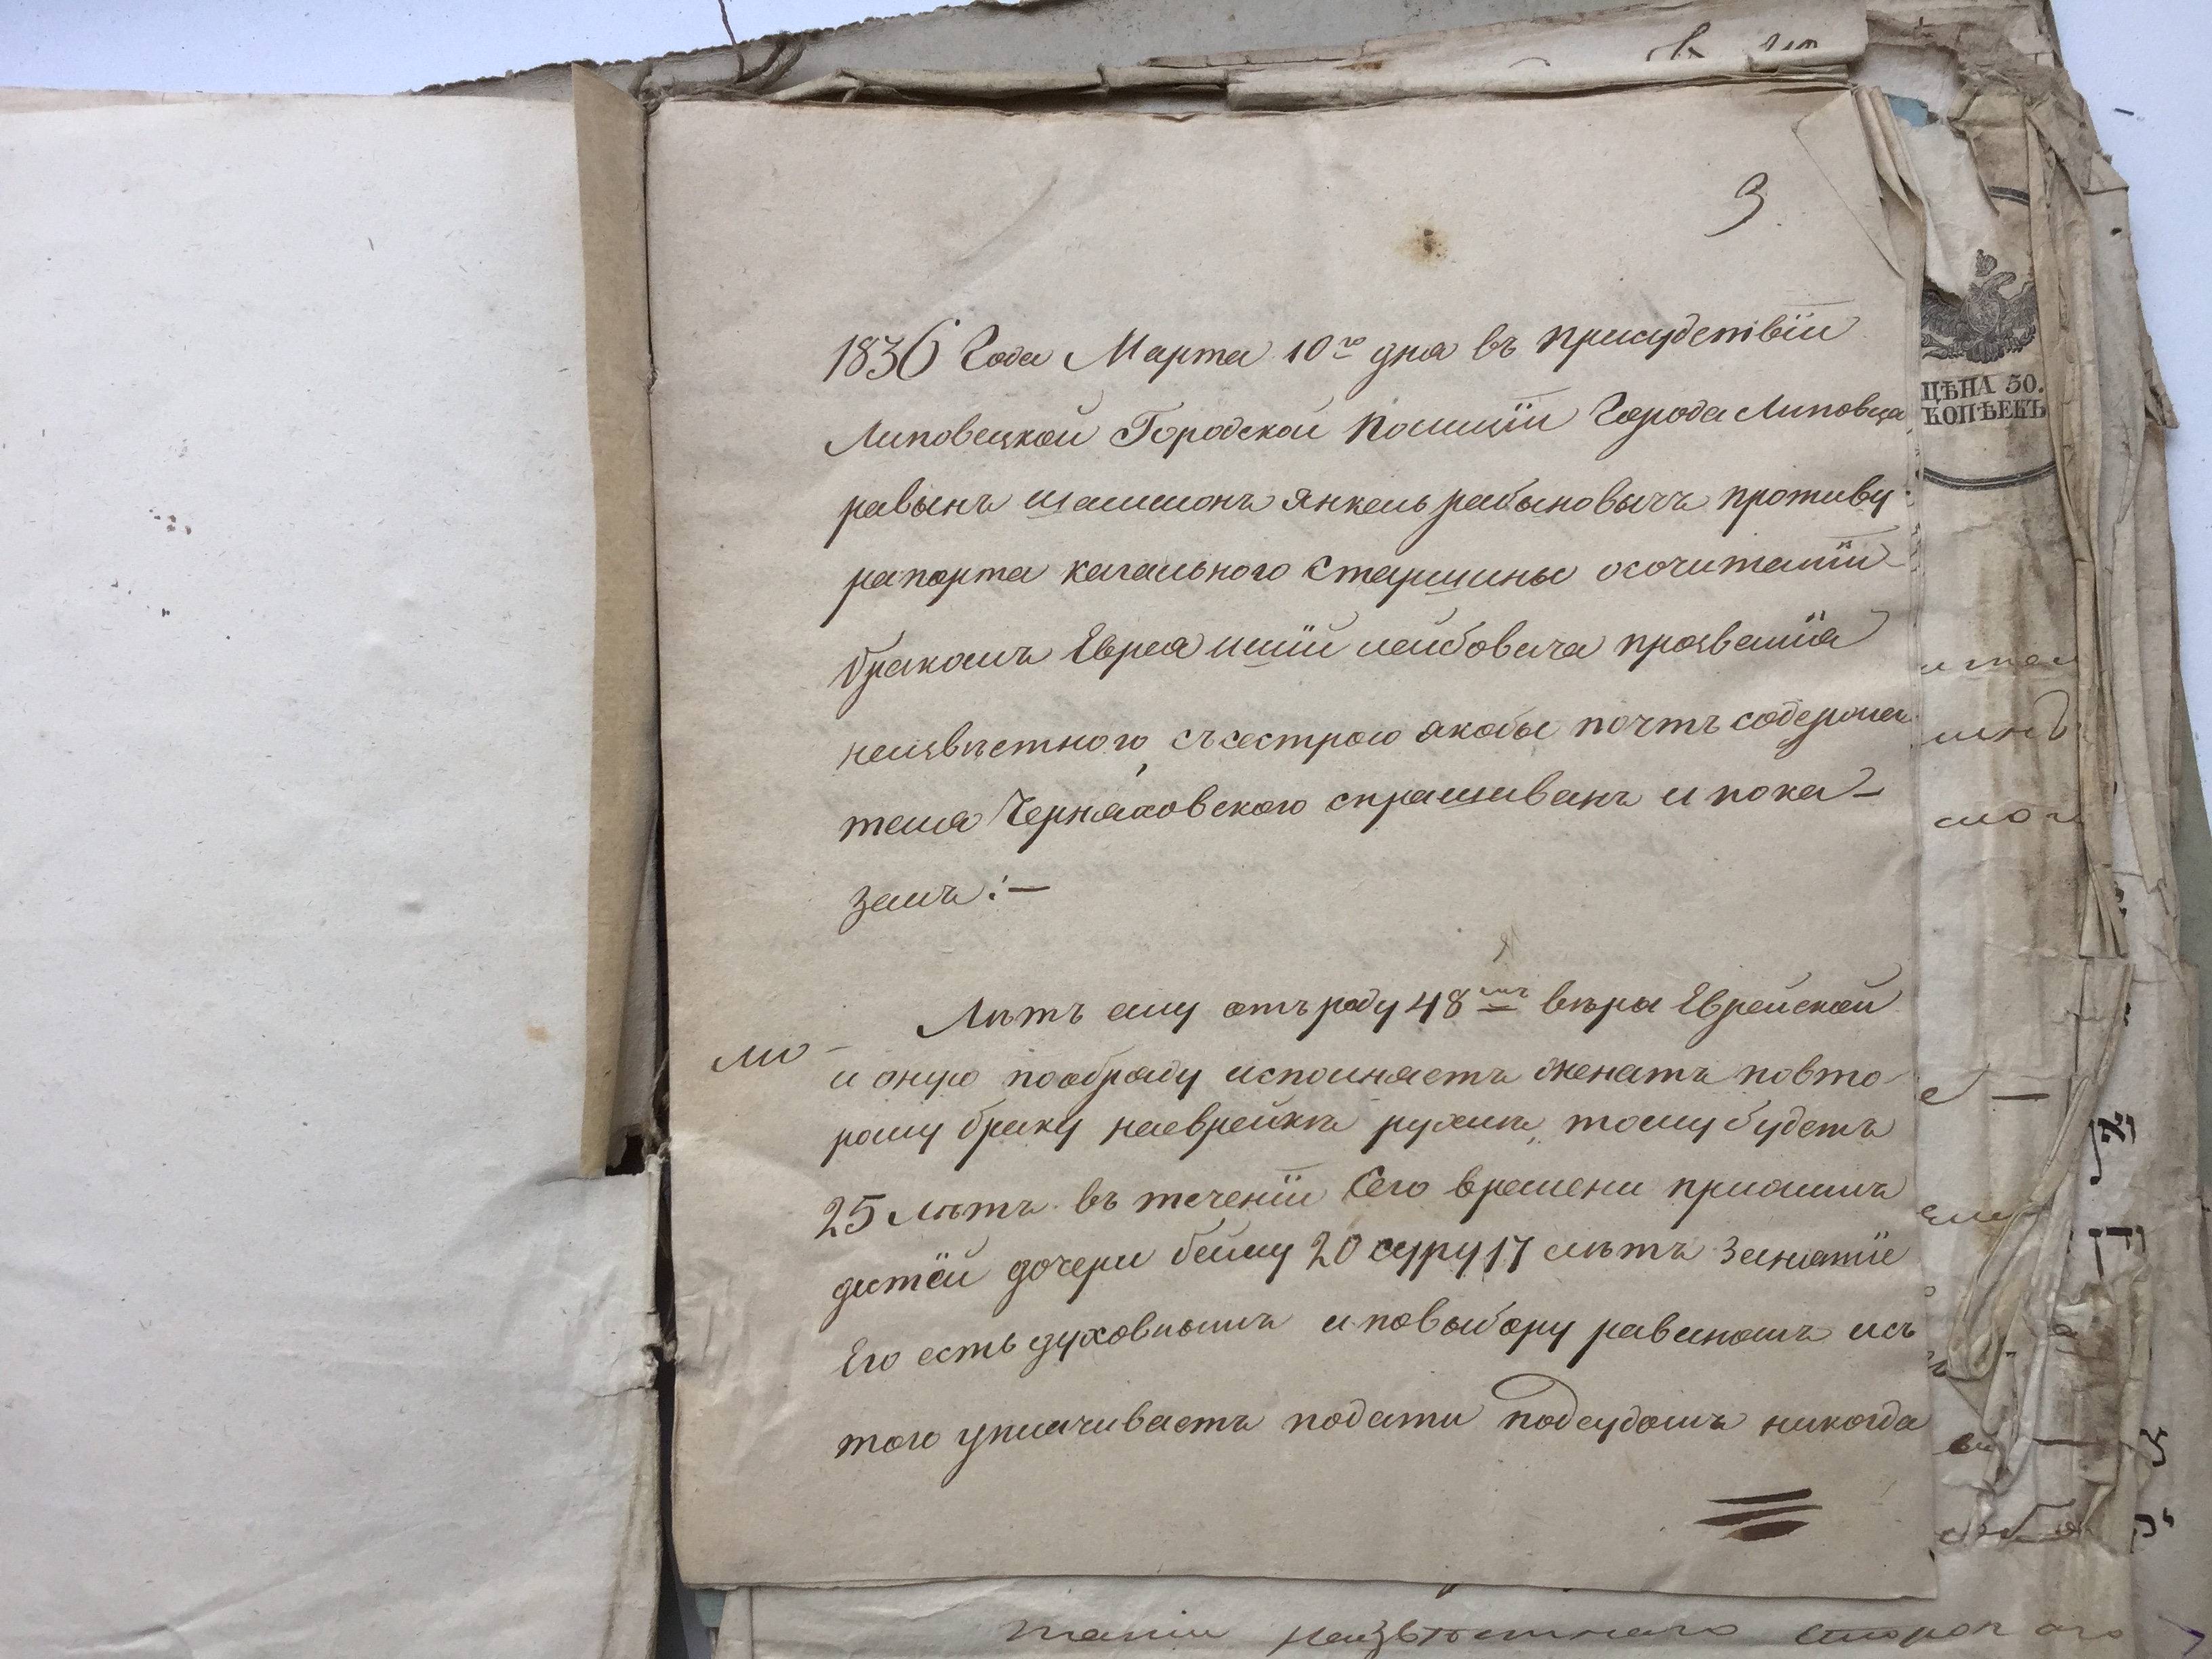 3.
1836 Года Марта 10го дня въ присудствіи
Липовецкой Городской Полиціи Города Липовца
равынъ шаймонъ Янкель рабыновычъ противу
рапорта кагального Старшины осочитаніи
бракомъ Еврея ицїи лейбовича прозванїя
неизвѣстного, съсестрою якобы почтъ содержа
теля Черняховского спрашиванъ и пока-
залъ:—
Лѣтъ ему отъ роду 48мъ вѣры Еврейской
и оную пообряду исполняетъ женатъ повто
рому браку наеврейкѣ рухлѣ, тому будетъ
25 лѣтъ въ теченїи Сего времени прижилъ
дѣтей дочери бейлу 20 суру 17 лѣтъ Занятїе
Его есть духовнымъ и повыбору равиномъ исъ
того уплачиваетъ подати подсудомъ никогда
ЦѢНА 50.
КОПѢЕКЪ